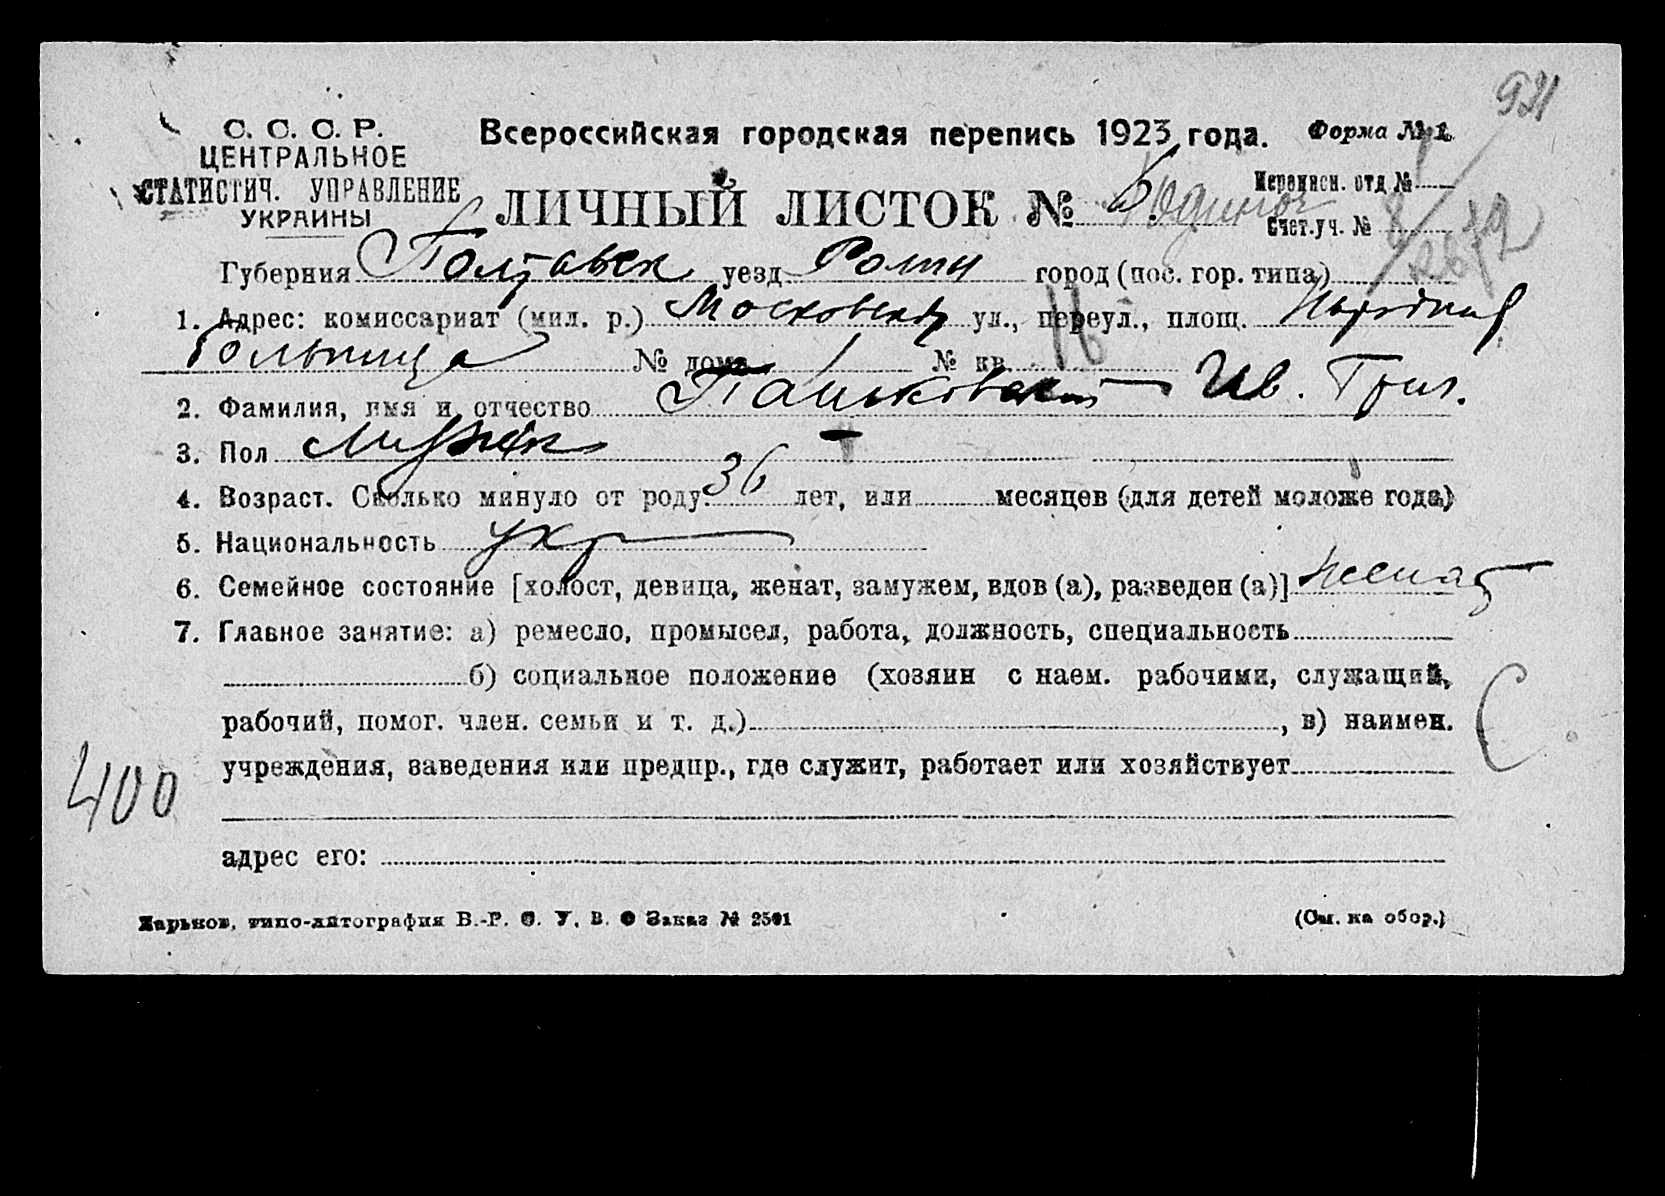 931
С. С. С. Р.
ЦЕНТРАЛЬНОЕ
СТАТИСТИЧ. УПРАВЛЕНИЕ
УКРАИНЫ
Всероссийская городская перепись 1923 года. Форма № 1
ЛИЧНЫЙ ЛИСТОК № 6.
Переписн. отд №
Счет.уч. №
Губерния Полтавск уезд Ромны город (пос. гор. типа)
1. Адрес: комиссариат (мил. р.) Московская ул., переул., площ.
больница № дома 1 № кв.
2. Фамилия, имя и отчество Паньковский Ив. Григ.
3. Пол Мужск
4. Возраст. Сколько минуло от роду 36 лет, или месяцев (для детей моложе года)
5. Национальность укр
6. Семейное состояние [холост, девица, женат, замужем, вдов (а), разведен (а)] женат
7. Главное занятие: а) ремесло, промысел, работа, должность, специальность
б) социальное положение (хозяин с наем. рабочими, служащий,
рабочий, помог. член. семьи и т. д.) , в) наимен.
учреждения, заведения или предпр., где служит, работает или хозяйствует
400
адрес его:
Харьков, типо-литография В.-Р. О. У. В. О Заказ № 2501 (См. на обор.)